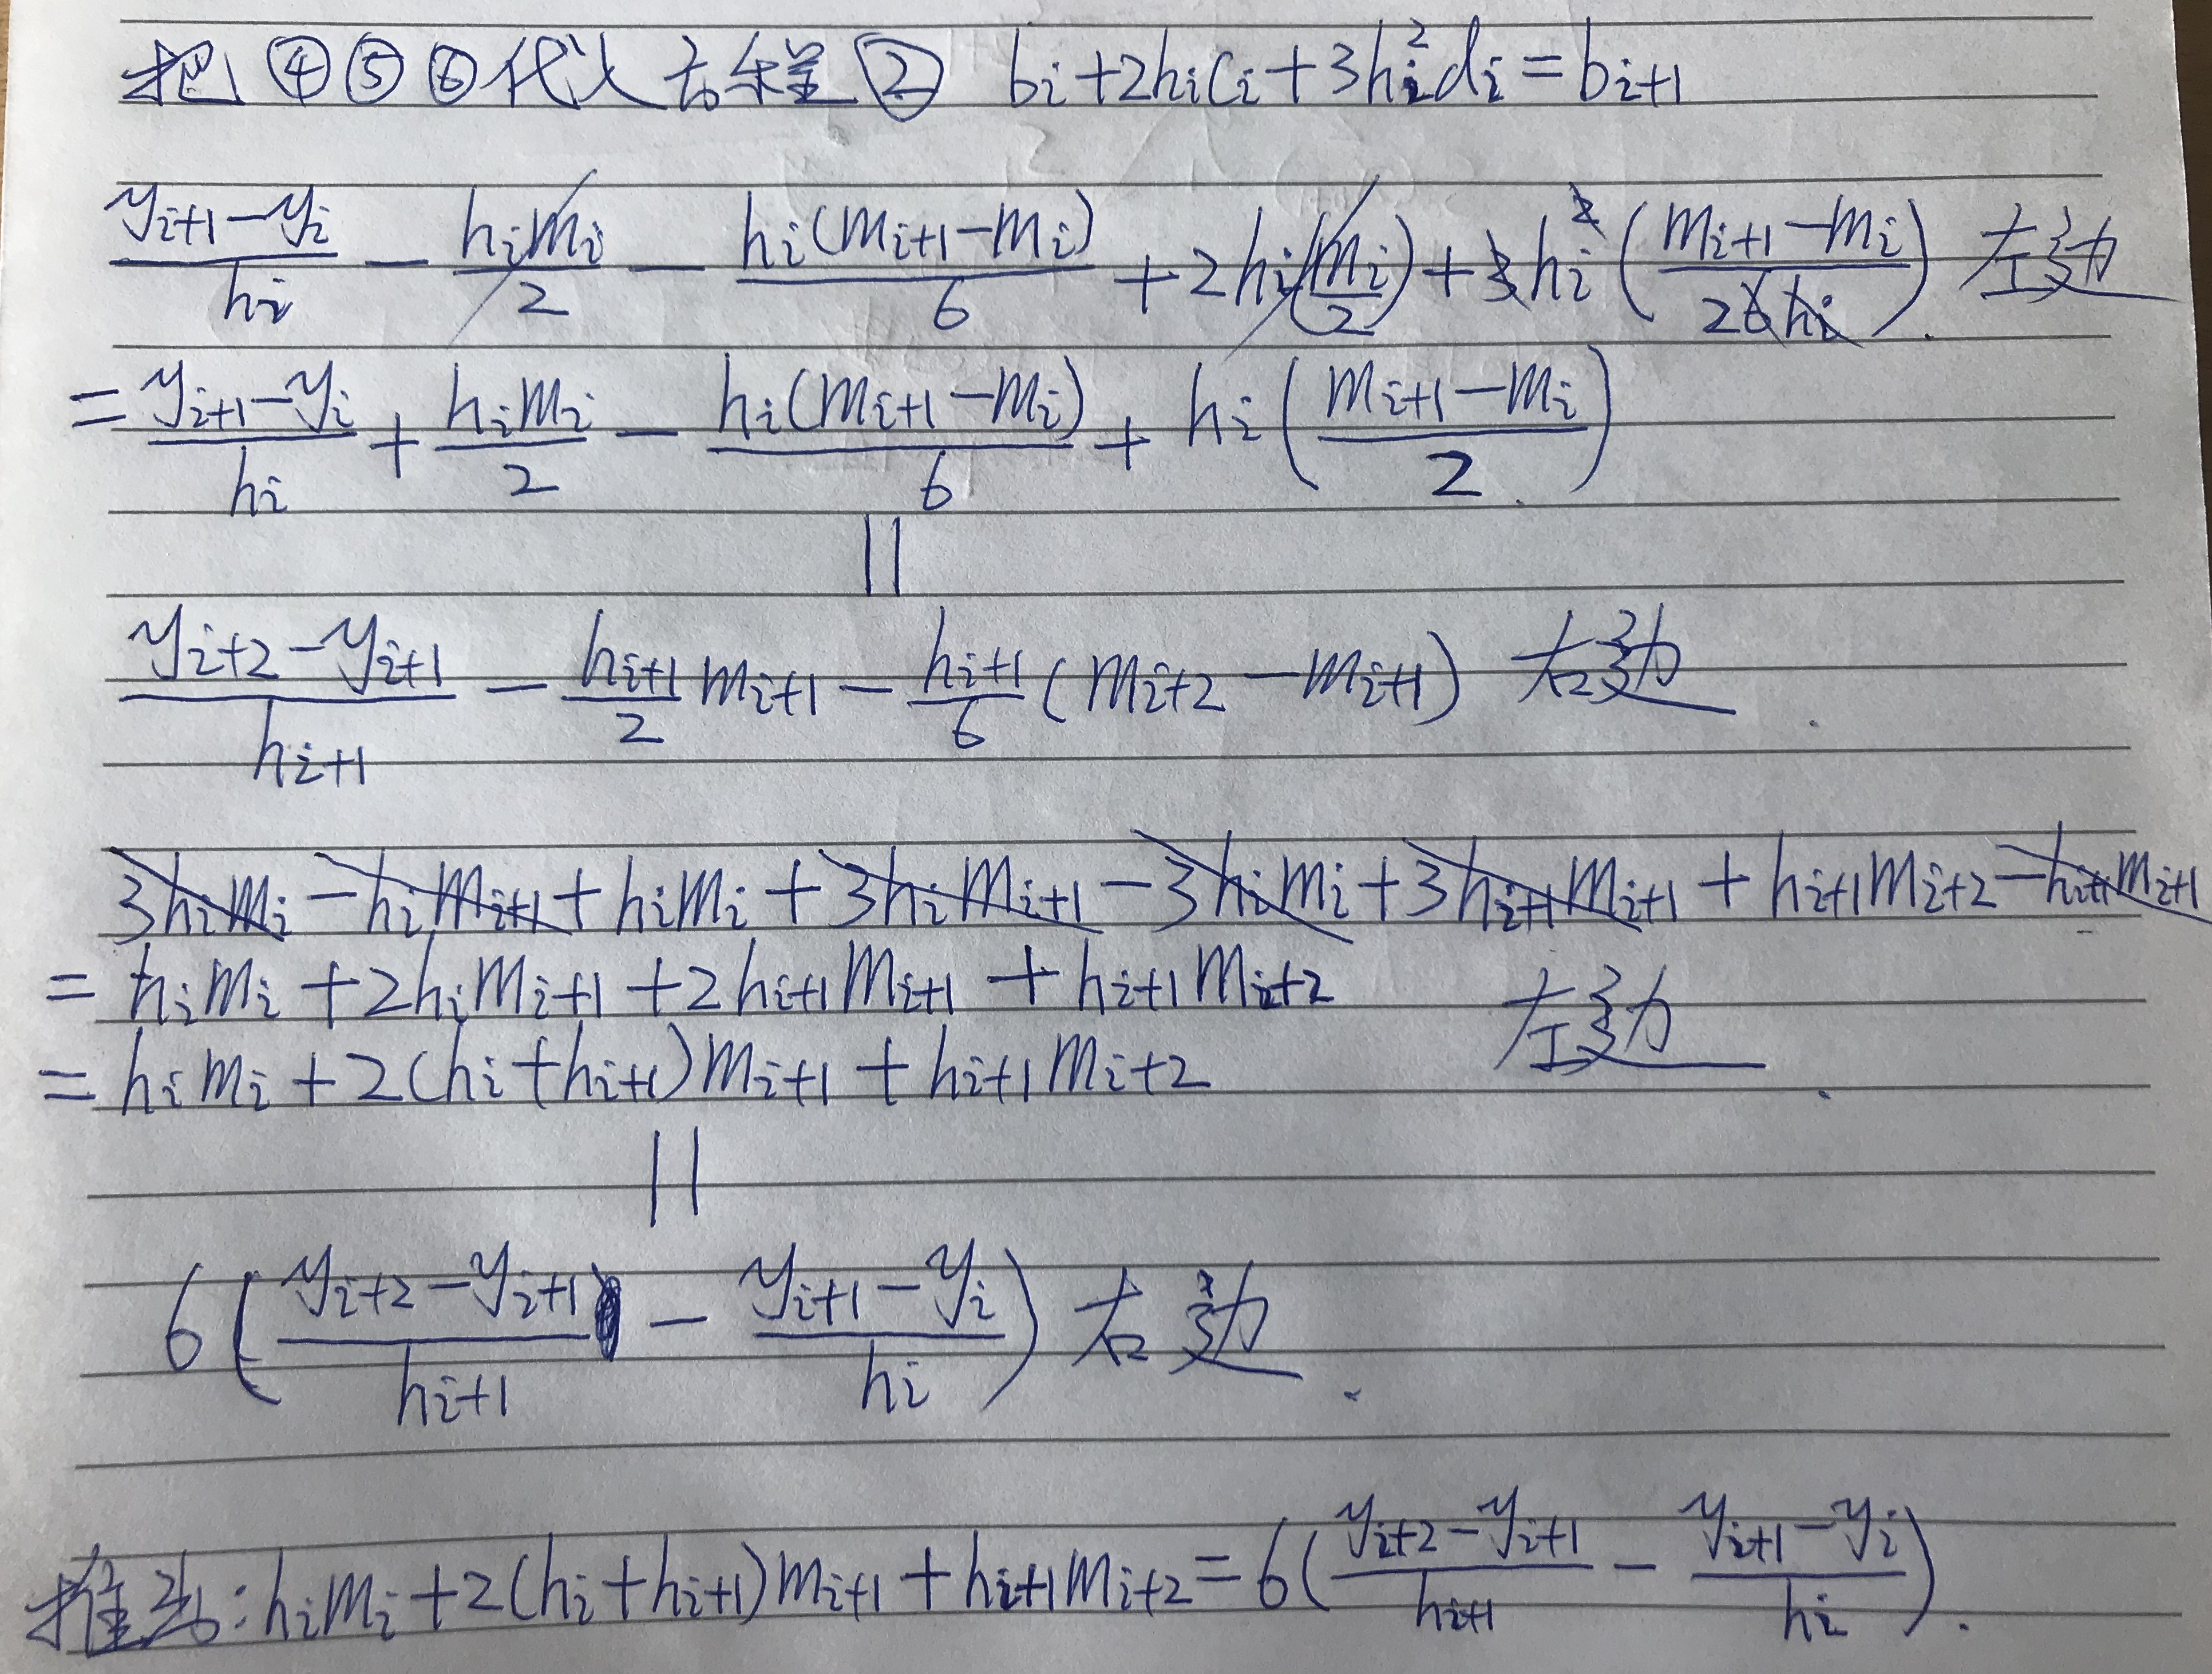 把④⑤⑥代入方程② bᵢ+2hᵢcᵢ+3hᵢ²dᵢ=bᵢ₊₁
(yᵢ₊₁-yᵢ)/hᵢ - hᵢmᵢ/2 - hᵢ(mᵢ₊₁-mᵢ)/6 + 2hᵢ(mᵢ/2) + 3hᵢ²((mᵢ₊₁-mᵢ)/(26hᵢ)) 左边.
= (yᵢ₊₁-yᵢ)/hᵢ + hᵢmᵢ/2 - hᵢ(mᵢ₊₁-mᵢ)/6 + hᵢ((mᵢ₊₁-mᵢ)/2)
||
(yᵢ₊₂-yᵢ₊₁)/hᵢ₊₁ - (hᵢ₊₁/2)mᵢ₊₁ - (hᵢ₊₁/6)(mᵢ₊₂-mᵢ₊₁) 右边.
3hᵢmᵢ-hᵢmᵢ₊₁+hᵢmᵢ+3hᵢmᵢ₊₁-3hᵢmᵢ+3hᵢ₊₁mᵢ₊₁+hᵢ₊₁mᵢ₊₂-hᵢ₊₁mᵢ₊₁
= hᵢmᵢ+2hᵢmᵢ₊₁+2hᵢ₊₁mᵢ₊₁+hᵢ₊₁mᵢ₊₂
= hᵢmᵢ+2(hᵢ+hᵢ₊₁)mᵢ₊₁+hᵢ₊₁mᵢ₊₂ 左边.
||
6((yᵢ₊₂-yᵢ₊₁)/hᵢ₊₁ - (yᵢ₊₁-yᵢ)/hᵢ) 右边.
推出:hᵢmᵢ+2(hᵢ+hᵢ₊₁)mᵢ₊₁+hᵢ₊₁mᵢ₊₂=6((yᵢ₊₂-yᵢ₊₁)/hᵢ₊₁ - (yᵢ₊₁-yᵢ)/hᵢ).